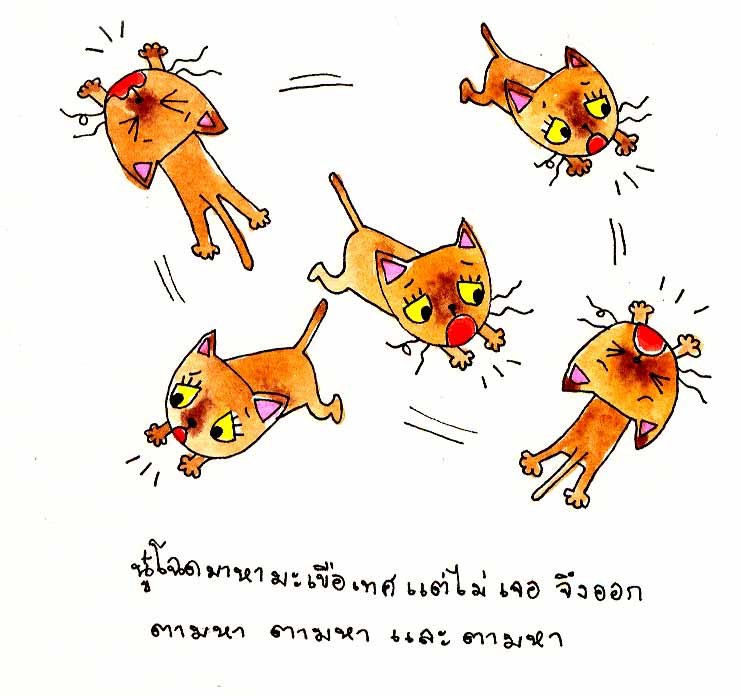 นู๋โฉดมาหามะเขือเทศ แต่ไม่ เจอ จึงออก
ตามหา ตามหา และ ตามหา